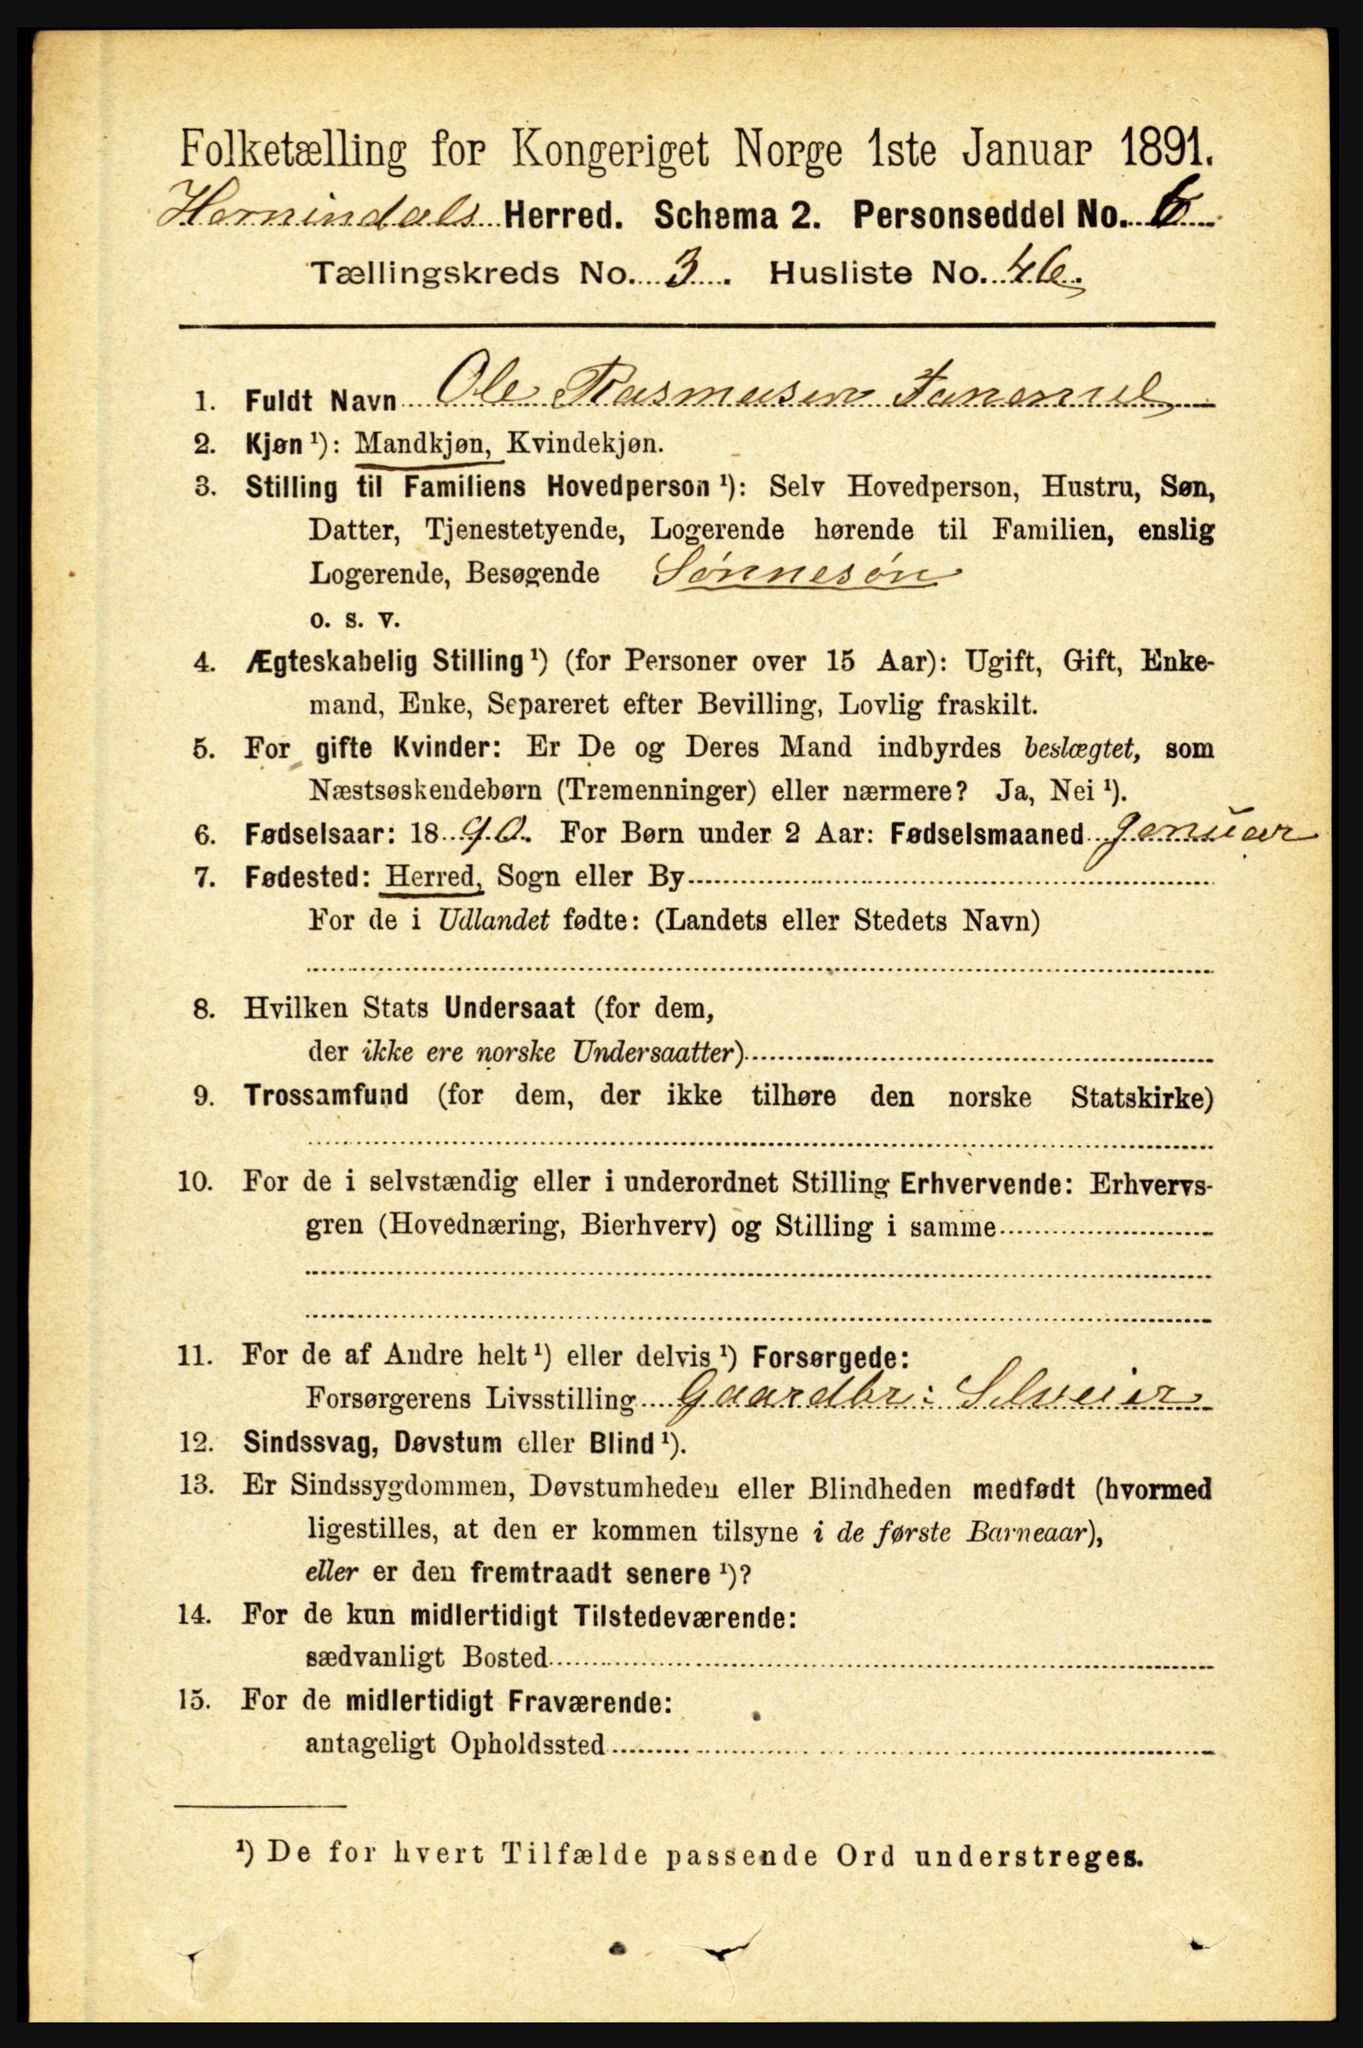 Folketælling for Kongeriget Norge 1ste Januar 1891.
Hornindals Herred. Schema 2. Personseddel No. 6
Tællingskreds No. 3. Husliste No. 46.
1. Fuldt Navn Ole Rasmusen
2. Kjøn ¹): Mandkjøn, Kvindekjøn.
3. Stilling til Familiens Hovedperson ¹): Selv Hovedperson, Hustru, Søn,
Datter, Tjenestetyende, Logerende hørende til Familien, enslig
Logerende, Besøgende Sønnesøn
o. s. v.
4. Ægteskabelig Stilling ¹) (for Personer over 15 Aar): Ugift, Gift, Enke-
mand, Enke, Separeret efter Bevilling, Lovlig fraskilt.
5. For gifte Kvinder: Er De og Deres Mand indbyrdes beslægtet, som
Næstsøskendebørn (Tremenninger) eller nærmere? Ja, Nei ¹).
6. Fødselsaar: 1890. For Børn under 2 Aar: Fødselsmaaned Januar
7. Fødested: Herred, Sogn eller By
For de i Udlandet fødte: (Landets eller Stedets Navn)
8. Hvilken Stats Undersaat (for dem,
der ikke ere norske Undersaatter)
9. Trossamfund (for dem, der ikke tilhøre den norske Statskirke)
10. For de i selvstændig eller i underordnet Stilling Erhvervende: Erhvervs-
gren (Hovednæring, Bierhverv) og Stilling i samme
11. For de af Andre helt ¹) eller delvis ¹) Forsørgede:
Forsørgerens Livsstilling Gaardbr: Selveier
12. Sindssvag, Døvstum eller Blind ¹).
13. Er Sindssygdommen, Døvstumheden eller Blindheden medfødt (hvormed
ligestilles, at den er kommen tilsyne i de første Barneaar),
eller er den fremtraadt senere ¹)?
14. For de kun midlertidigt Tilstedeværende:
sædvanligt Bosted
15. For de midlertidigt Fraværende:
antageligt Opholdssted
¹) De for hvert Tilfælde passende Ord understreges.